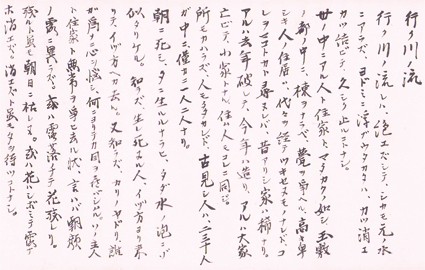 行ク川ノ流
行ク川ノ流レハ絶エズシテ、シカモ元ノ水
ニアラズ。ヨドミニ浮ブウタカタハ、カツ消エ
カツ結ビテ久シク止ルコトナシ。
世ノ中ニアル人ト住家ト、マタカクノ如シ。玉敷
ノ都ノ中ニ、棟ヲナラベ甍ヲ争ヘル、高キ卑
シキ人ノ住居ハ、代々ヲ経テツキセヌモノナレド、コ
レヲマコトカト尋ヌレバ、昔アリシ家ハ稀ナリ。
アルハ去年破レテ今年ハ造リ、アルハ大家
亡ビテ小家トナル。住ム人モコレニ同ジ。
所モカハラズ、人モ多カレド、古見シ人ハ、二三十人
ガ中ニ僅カニ一人二人ナリ。
朝ニ死シ、夕ニ生ルルナラヒ、タダ水ノ泡ニゾ
似タリケル。知ラズ、生レ死ヌル人、イヅ方ヨリ来
リテ、イヅ方ヘカ去ル。又知ラズ、カリノヤドリ、誰
ガ為ニ心ヲ悩シ、何ニヨリテカ目ヲ悦バシムル。ソノ主人
ト住家ト無常ヲ争ヒ去ル状、言ハバ朝顔
ノ露ニ異ラズ。或ハ露落チテ花残レリ。
残ルト雖モ朝日ニ枯レヌ。或ハ花ハシボミテ露ナ
ホ消エズ。消エズト雖モ夕ヲ待ツコトナシ。